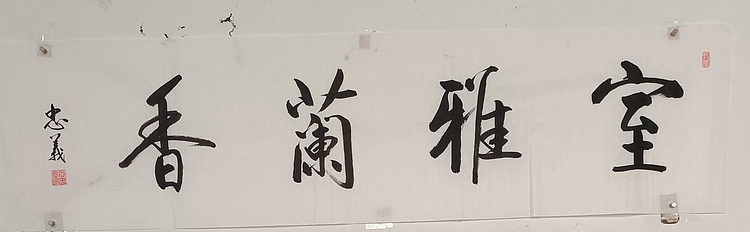 室雅蘭香
忠義